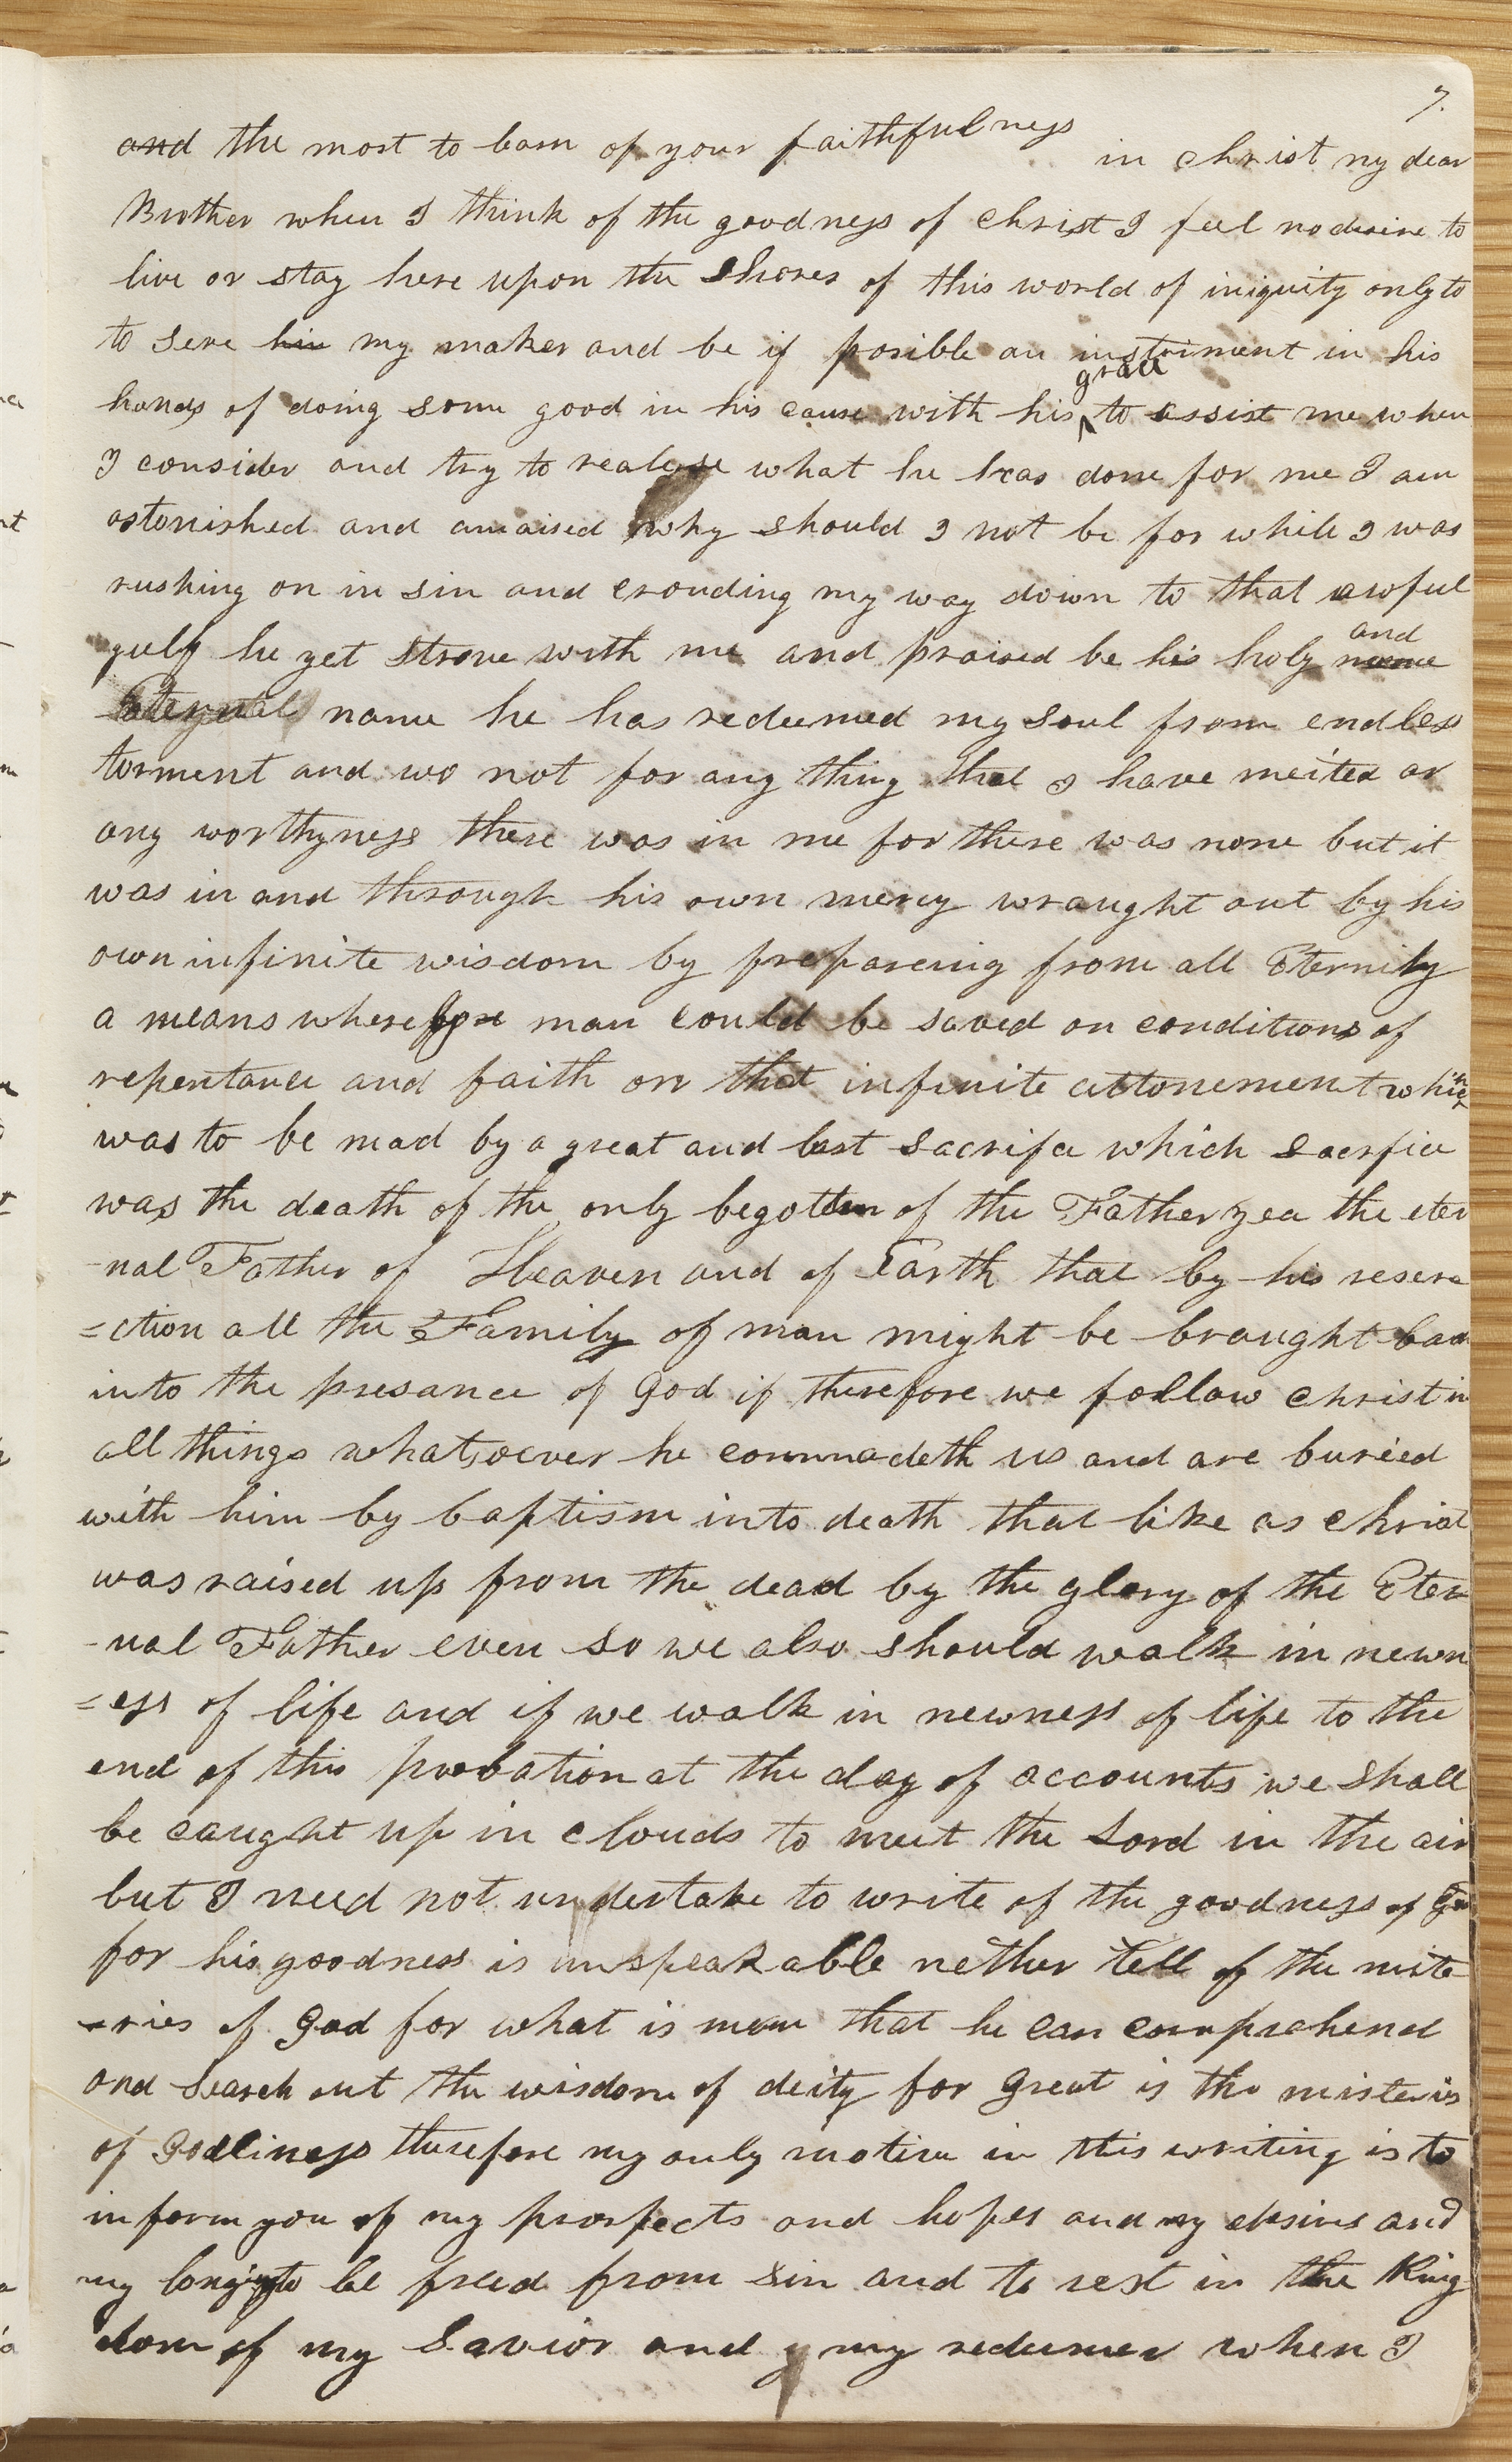 7.
and the most to barn of your faithfulness in christ my dear
Brother when I think of the goodness of christ I feel no desire to
live or stay here upon the shores of this world of iniquity only to
to serve him my maker and be if posible an instriment in his
hands of doing some good in his cause with his grace to assist me when
I consider and try to realise what he has done for me I am
astonished and amaised why should I not be for while I was
rushing on in sin and crouding my way down to that awful
gulf he yet strove with me and praised be his holy and name
Eternal name he has redeemed my soul from endless
torment and wo not for any thing that I have merited or
any worthyness there was in me for there was none but it
was in and through his own mercy wraught out by his
own infinite wisdom by prepareing from all Eternity
a means wherefore man could be saved on conditions of
repentance and faith on that infinite attonement which
was to be mad by a great and last sacrifce which sacrfice
was the death of the only begotten of the Father yea the eter
-nal Father of Heaven and of Earth that by his resere
=ction all the Family of man might be braught back
into the presance of God if therefore we follow christ in
all things whatsoever he commadeth us and are buried
with him by baptism into death that like as christ
was raised up from the dead by the glory of the Eter
-nal Father even so we also should walk in newn
=ess of life and if we walk in newness of life to the
end of this probation at the day of accounts we shall
be caught up in clouds to meet the Lord in the air
but I need not undertake to write of the goodness of God
for his goodness is unspeakable nether tell of the miste
-ries of God for what is man that he can comprehend
and search out the wisdom of deity for great is the misteries
of Godliness therefore my only motive in this writing is to
inform you of my prospects and hopes and my desires and
my longing to be freed from sin and to rest in the King
dom of my Savior and my redeemer when I